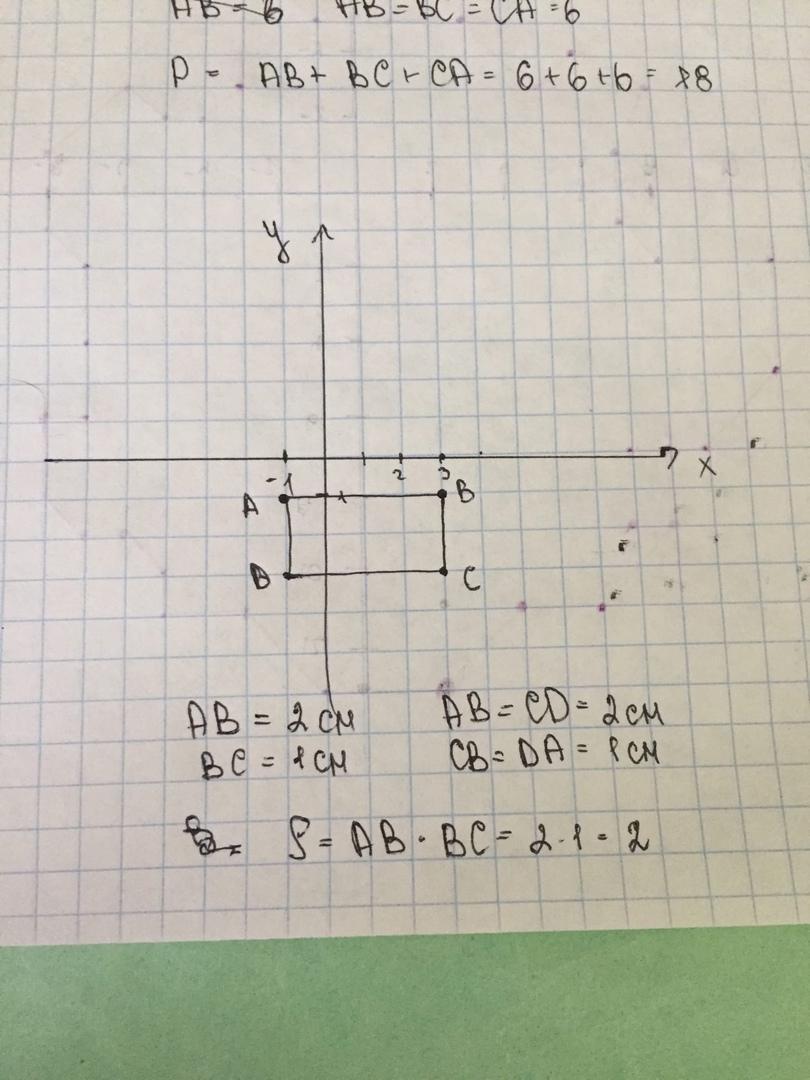 AB = 6 AB = BC = CA = 6
P = AB + BC + CA = 6 + 6 + 6 = 18
y
-1 2 3 x
A B
B C
AB = 2 см AB = CD = 2 см
BC = 1 см CB = DA = 1 см
S = AB · BC = 2 · 1 = 2